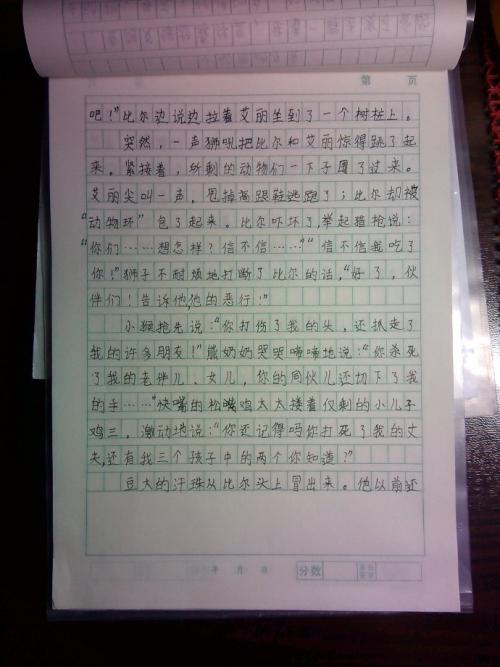 第 页
吧!”比尔边说边拉着艾丽坐到了一个树桩上。
突然,一声狮吼把比尔和艾丽惊得跳了起
来。紧接着,所剩的动物们一下子围了过来。
艾丽尖叫一声,甩掉高跟鞋逃跑了;比尔却被
“动物环”包了起来。比尔吓坏了,举起猎枪说:
“你们……想怎样?信不信……”“信不信我吃了
你!”狮子不耐烦地打断了比尔的话,“好了,伙
伴们!告诉他,他的恶行!”
小猴抢先说:“你打伤了我的头,还抓走了
我的许多朋友!”熊奶奶哭哭啼啼地说:“你杀死
了我的老伴儿、女儿,你的同伙儿还切下了我
的手……”快嘴的松鸡太太搂着仅剩的小儿子
鸡三,激动地说:“你还记得吗你打死了我的丈
夫,还有我三个孩子中的两个你知道?”
豆大的汗珠从比尔头上冒出来。他以前还
年 月 日
分数